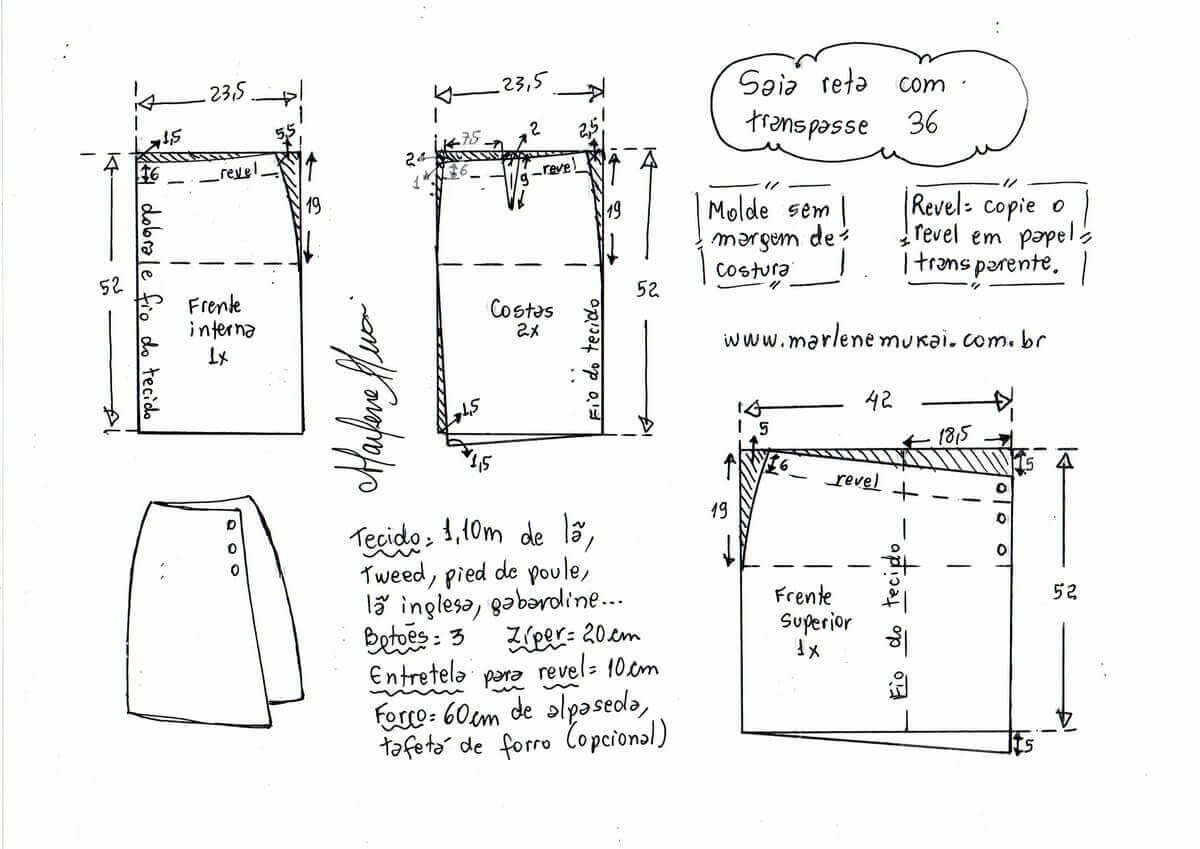 Saia reta com
transpasse 36
Molde sem
margem de
costura
Revel= copie o
revel em papel
transparente.
www.marlenemukai.com.br
23,5
1,5
5,5
6
revel
19
52
dobra e fio do tecido
Frente
interna
1x
23,5
7,5
2
2,5
2
1
6
9
revel
19
52
Costas
2x
Fio do tecido
1,5
1,5
42
18,5
5
6
5
revel
19
52
Fio do tecido
Frente
Superior
1x
5
Tecido= 1,10m de lã,
Tweed, pied de poule,
lã inglesa, gabardine...
Botões= 3 Zíper= 20cm
Entretela para revel= 10cm
Forro= 60cm de alpaseda,
tafetá de forro (opcional)